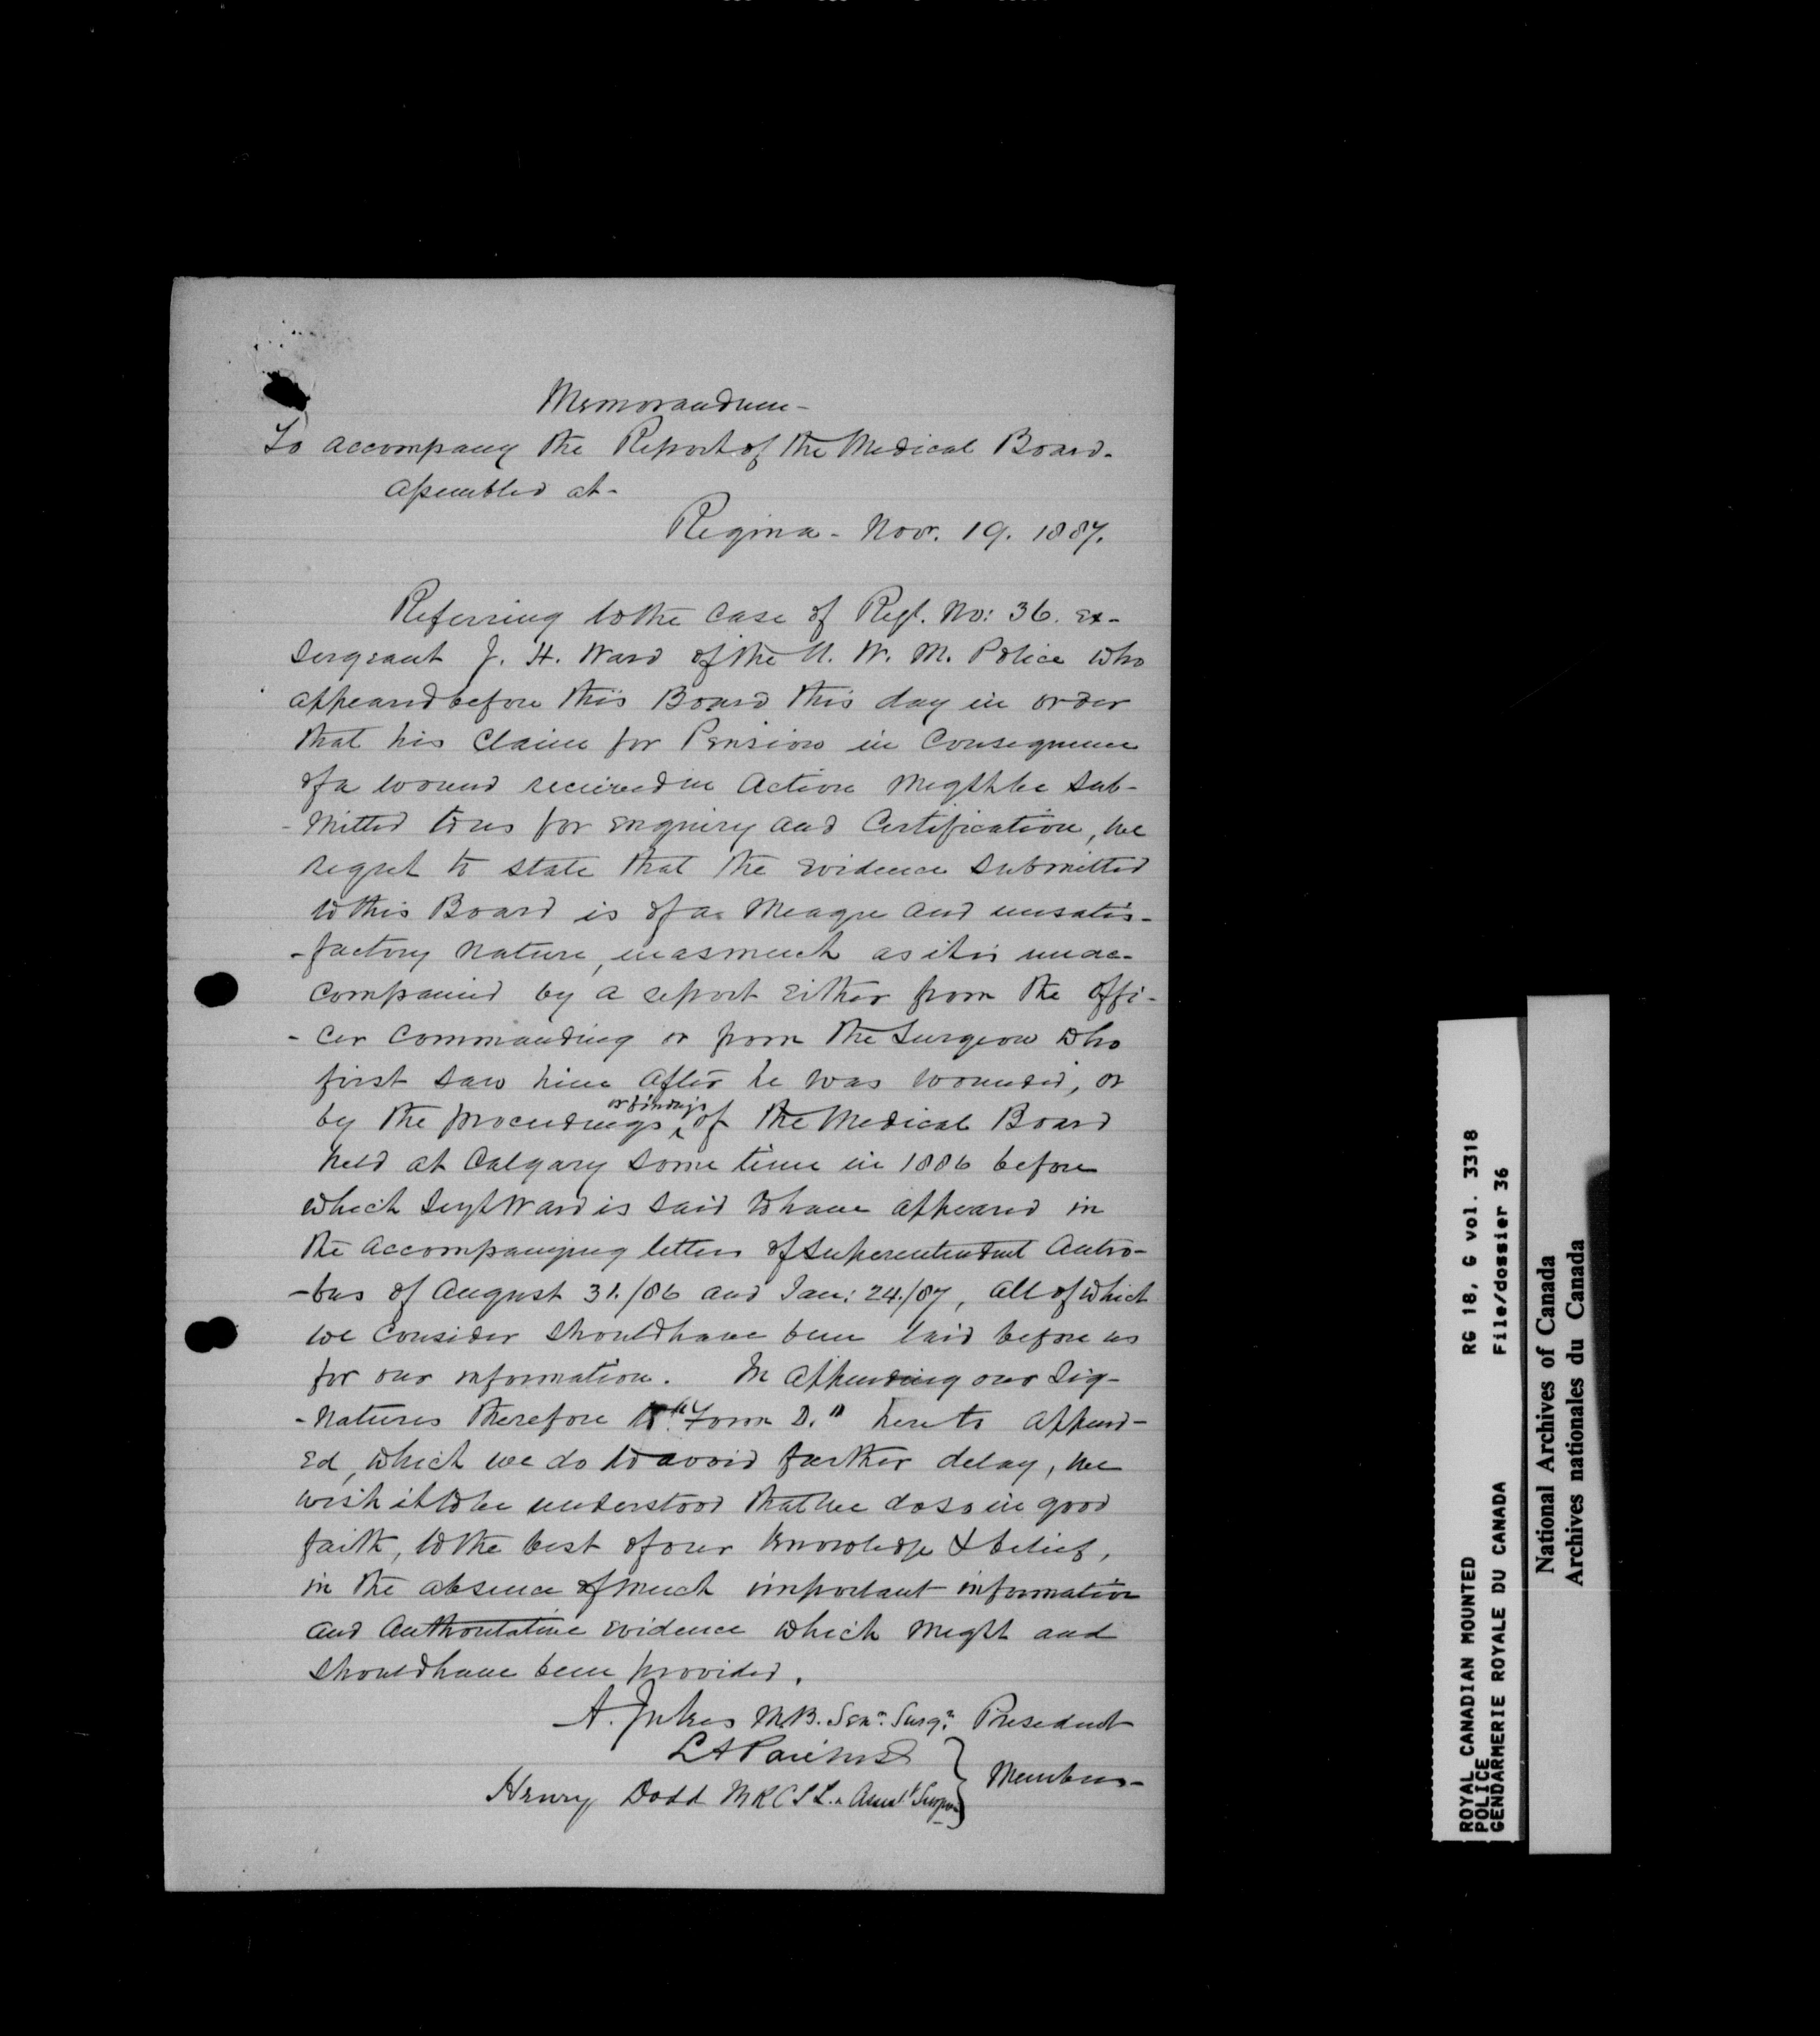 Memorandum -
To accompany the Report of the Medical Board.
assembled at -
Regina - Nov. 19. 1887.
Referring to the case of Regt. No: 36. Ex-
Sergeant J. H. Ward of the N. W. M. Police who
appeared before this Board this day in order
that his Claim for Pension in Consequence
of a wound received in Action might be sub-
- mitted to us for enquiry and Certification, we
regret to state that the Evidence submitted
to this Board is of a Meagre and unsatis-
- factory nature, in as much as it is unac-
companied by a report either from the Offi-
- cer Commanding or from the Surgeon who
first saw him after he was wounded, or
by the proceedings or findings of the Medical Board
held at Calgary some time in 1886 before
which Sergt Ward is said to have appeared in
the accompanying letters of Superintendent Antro-
- bus of August 31./86 and Jan: 24./87, all of which
we consider should have been laid before us
for our information. In appending our Sig-
- natures therefore to "Form D." hereto append-
ed, which we do to avoid further delay, we
wish it to be understood that we do so in good
faith, to the best of our knowledge & belief,
in the absence of much important information
and Authoritative evidence which might and
should have been provided.
A. Jukes M.B. Senr. Surgn. President
L A Paré
Henry Dodd M R C S L. Assist Surgeon
Members -
ROYAL CANADIAN MOUNTED
POLICE
GENDARMERIE ROYALE DU CANADA
RG 18, G vol. 3318
File/dossier 36
National Archives of Canada
Archives nationales du Canada